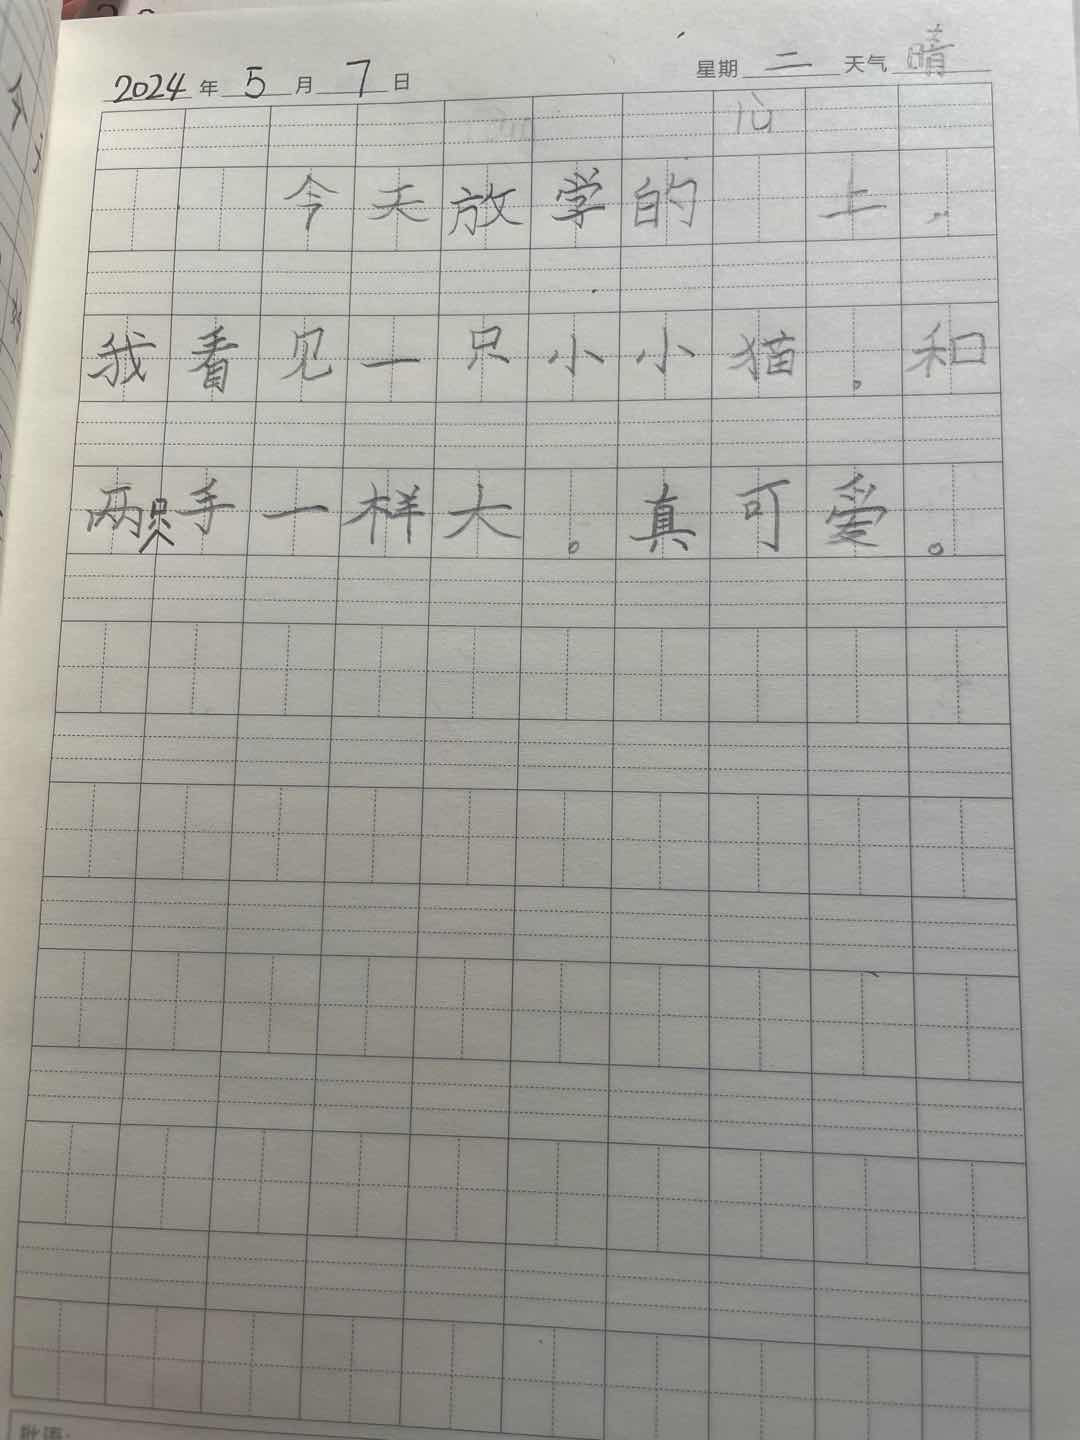 2024年5月7日 星期二 天气晴
今天放学的 上，
我看见一只小小猫。和
两只手一样大。真可爱。